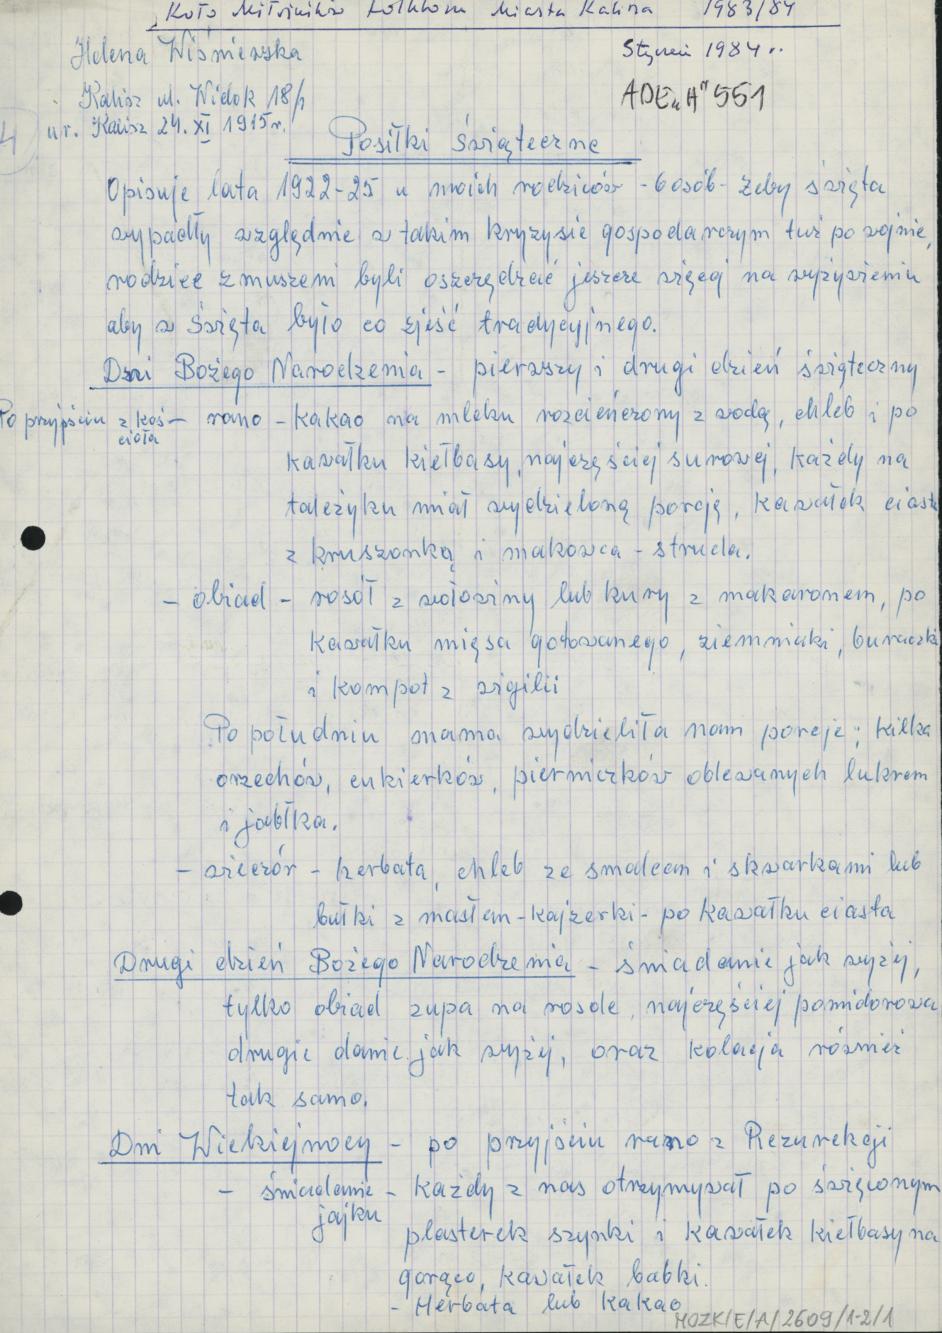 Koło Miłośników Folkloru Miasta Kalisza 1983/84
Helena Wiśniewska
Styczeń 1984 r.
Kalisz ul. Widok 18/1
ADE "A" 551
ur. Kalisz 24. XI 1915 r.
Posiłki świąteczne
Opisuję lata 1922-25 u moich rodziców - 6 osób - żeby święta
wypadły względnie w takim kryzysie gospodarczym tuż po wojnie,
rodzice zmuszeni byli oszczędzać jeszcze więcej na wyżywieniu
aby w święta było co zjeść tradycyjnego.
Dni Bożego Narodzenia - pierwszy i drugi dzień świąteczny
Po przyjściu z koś- - rano - kakao na mleku rozcieńczony z wodą, chleb i po
cioła
kawałku kiełbasy, najczęściej surowej, każdy na
tależyku miał wydzieloną porcję, kawałek ciasta
z kruszonką i makowca - strucla.
- obiad - rosół z wołowiny lub kury z makaronem, po
kawałku mięsa gotowanego, ziemniaki, buraczki
i kompot z wigilii
Po południu mama wydzieliła nam porcje; kilka
orzechów, cukierków, pierniczków oblewanych lukrem
i jabłka.
- wieczór - herbata, chleb ze smalcem i skwarkami lub
bułki z masłem - kajzerki - po kawałku ciasta
Drugi dzień Bożego Narodzenia - śniadanie jak wyżej,
tylko obiad zupa na rosole, najczęściej pomidorowa
drugie danie jak wyżej, oraz kolacja również
tak samo.
Dni Wielkiejnocy - po przyjściu rano z Rezurekcji
- śniadanie - każdy z nas otrzymywał po święconym
jajku
plasterek szynki i kawałek kiełbasy na
gorąco, kawałek babki.
- Herbata lub kakao
MOZK/E/A/2609/1-2/1